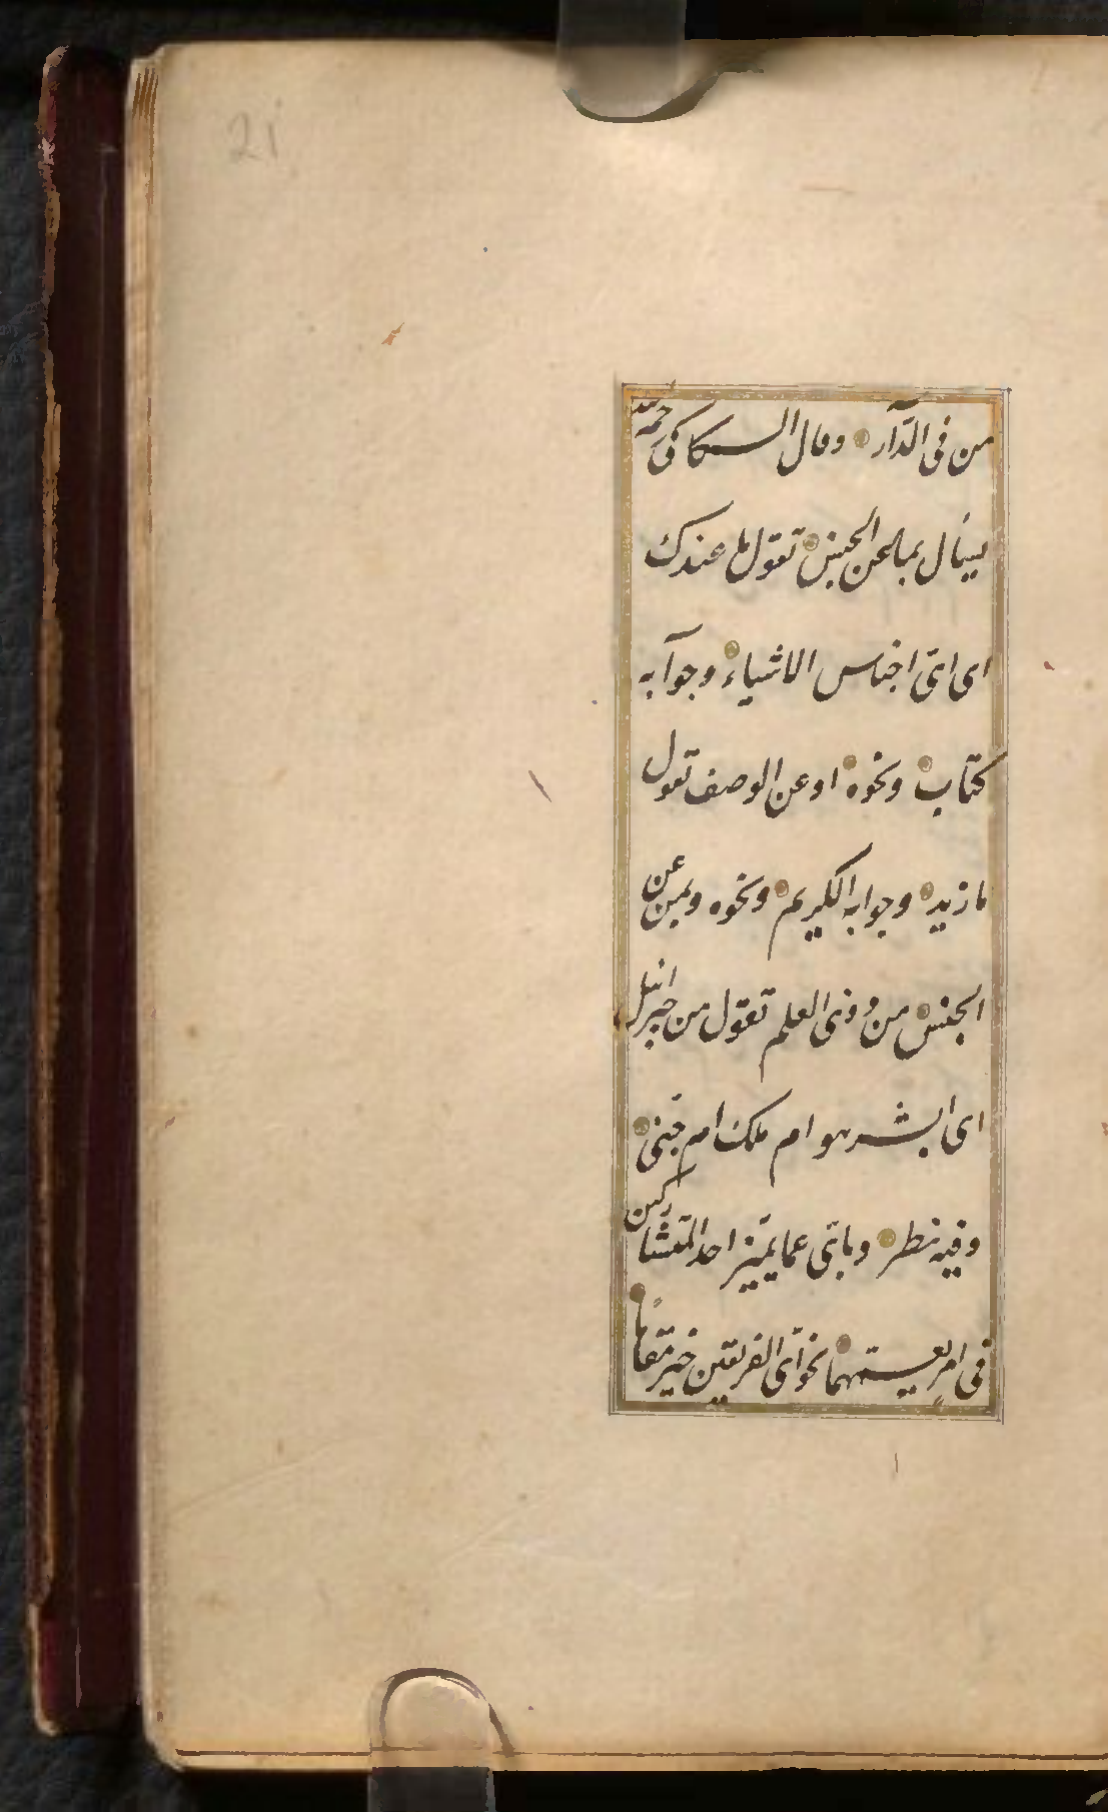 21
من فى الدآر وقال السكاكى رحمه الله
يسأل بما عن الجنس تقول ما عندك
اى اىّ اجناس الاشياء وجوآبه
كتاب ونحوه او عن الوصف تقول
ما زيد وجوابه الكريم ونحوه وبمن عن
الجنس من ذوى العلم تقول من جبرائيل
اى ابشر هو ام ملك ام جنى
وفيه نظر وباىّ عما يميّز احد المتشاركين
فى امر يعمهما نحو اىّ الفريقين خير مقاما